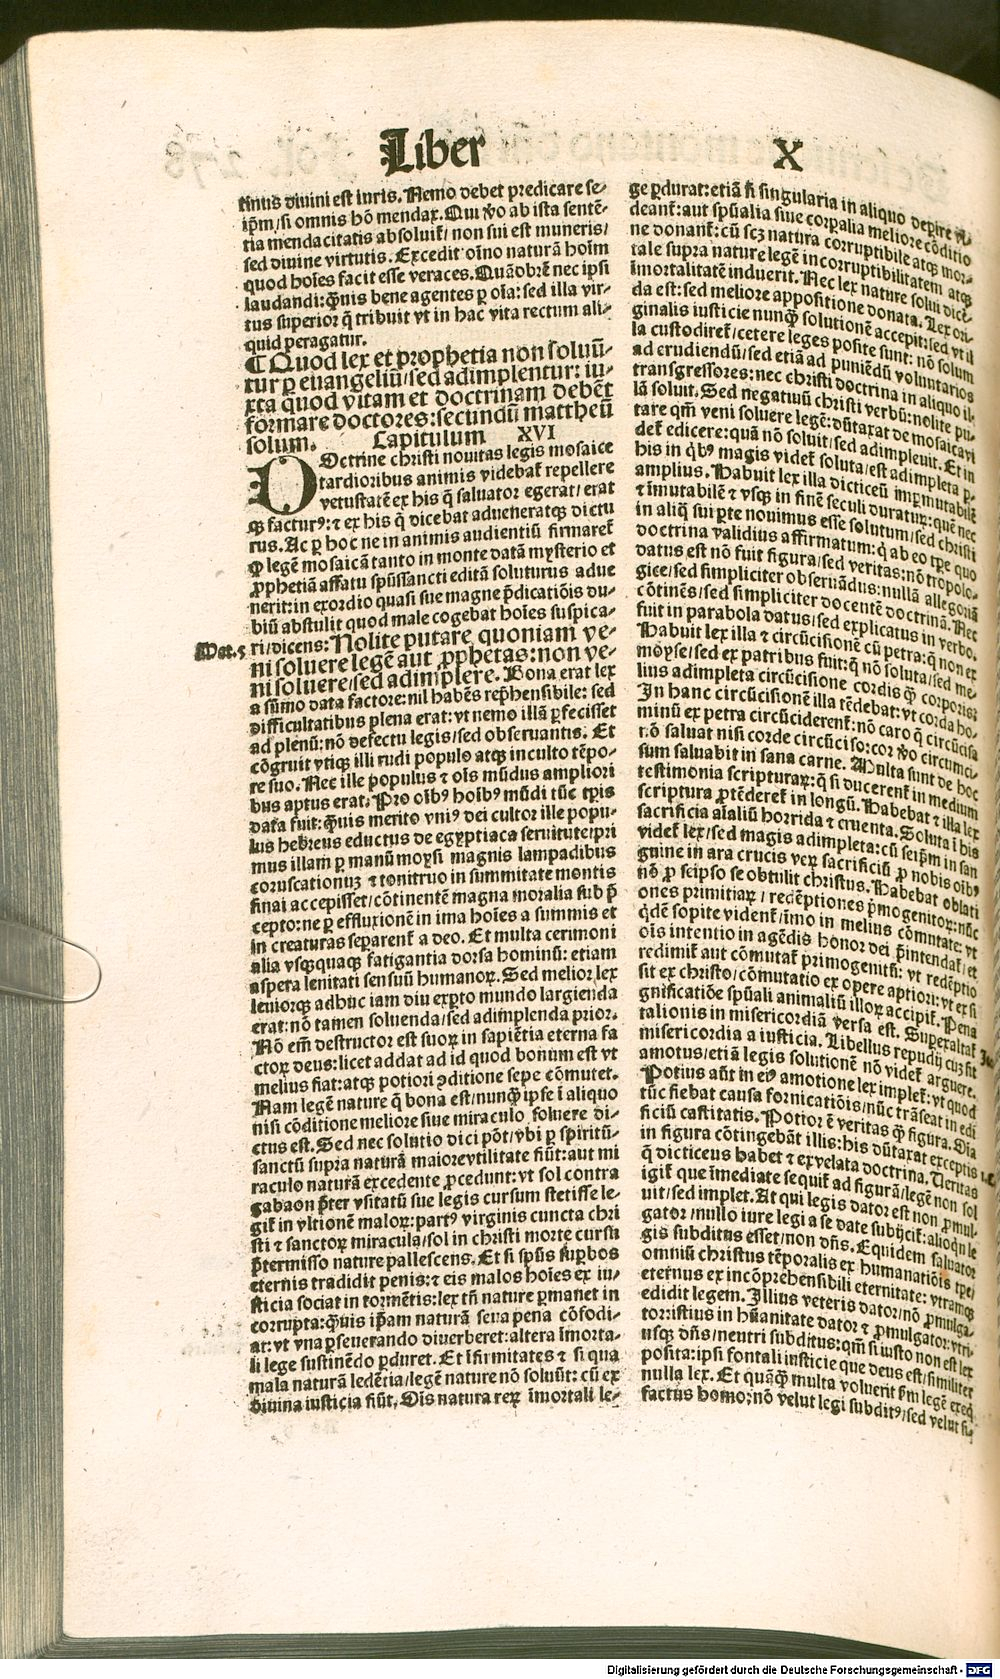 Liber X
tinus diuini est iuris. Nemo debet predicare se-
ip̄m/si omnis hō mendax. Qui v̄o ab ista sentē-
tia mendacitatis absoluit̄/non sui est muneris/
sed diuine virtutis. Excedit oīno naturā hoīm
quod hoīes facit esse veraces. Quāobrē nec ipsi
laudandi: q̄uis bene agentes ꝑ oīa: sed illa vir-
tus superior q̄ tribuit vt in hac vita rectum ali-
quid peragatur.
¶ Quod lex et prophetia non soluū-
tur ꝑ euangeliū/sed adimplentur: iu-
xta quod vitam et doctrinam debēt
formare doctores: secundū mattheū
solum. Capitulum XVI
DOctrine christi nouitas legis mosaice
tardioribus animis videbat̄ repellere
vetustatē ex his q̄ saluator egerat/erat
qꝫ factur⁹: ⁊ ex his q̄ dicebat adueneratqꝫ dictu
rus. Ac ꝑ hoc ne in animis audientiū firmaret̄
ꝙ legē mosaicā tanto in monte datā mysterio et
ꝓphetiā affatu sp̄ūssancti editā soluturus adue
nerit: in exordio quasi sue magne p̄dicatiōis du-
biū abstulit quod male cogebat hoīes suspica-
Mat.5 ri/dicens: Nolite putare quoniam ve-
ni soluere legē aut ꝓphetas: non ve-
ni soluere/sed adimplere. Bona erat lex
a sūmo data factore: nil habēs rep̄hensibile: sed
difficultatibus plena erat: vt nemo illā ꝑfecisset
ad plenū: nō defectu legis/sed obseruantis. Et
cōgruit vtiqꝫ illi rudi populo atqꝫ inculto tēpo-
re suo. Nec ille populus ⁊ oīs mūdus ampliori
bus aptus erat. Pro oīb⁹ hoīb⁹ mūdi tūc tp̄is
data fuit: q̄uis merito vni⁹ dei cultor ille popu-
lus hebreus eductus de egyptiaca seruitute/pri
mus illam ꝑ manū moysi magnis lampadibus
coruscationuꝫ ⁊ tonitruo in summitate montis
sinai accepisset/cōtinentē magna moralia sub p̄
cepto: ne ꝑ effluxionē in ima hoīes a summis et
in creaturas separent̄ a deo. Et multa cerimoni
alia vsquequaqꝫ fatigantia dorsa hominū: etiam
aspera lenitati sensuū humanoꝝ. Sed melior lex
leuiorqꝫ adhuc iam diu exꝑto mundo largienda
erat: nō tamen soluenda/sed adimplenda prior.
Nō em̄ destructor est suoꝝ in sapiētia eterna fa
ctoꝝ deus: licet addat ad id quod bonum est vt
melius fiat: atqꝫ potiori ꝯditione sepe cōmutet.
Nam legē nature q̄ bona est/nunq̄ ipse ī aliquo
nisi cōditione meliore siue miraculo soluere di-
ctus est. Sed nec solutio dici pōt/vbi ꝑ spiritū-
sanctū supra naturā maiore vtilitate fiūt: aut mi
raculo naturā excedente ꝓcedunt: vt sol contra
gabaon p̄ter vsitatū sue legis cursum stetisse le-
git̄ in vltionē maloꝝ: part⁹ virginis cuncta chri
sti ⁊ sanctoꝝ miracula/sol in christi morte cursu
p̄termisso nature pallescens. Et si sp̄ūs suꝑbos
eternis tradidit penis: ⁊ eis malos hoīes ex iu-
sticia sociat in tormētis: lex tn̄ nature ꝑmanet in
corrupta: q̄uis ip̄am naturā seua pena cōfodi-
at: vt vna ꝑseuerando diuerberet: altera īmorta-
li lege sustinēdo ꝑduret. Et īfirmitates ⁊ si qua
mala naturā ledētia/legē nature nō soluūt: cū ex
diuina iusticia fiūt. Ois natura reꝝ īmortali le-
ge ꝑdurat: etiā si singularia in aliquo deꝑire vi-
deant̄: aut sp̄ūalia siue corꝑalia meliore cōditio
ne donant̄: cū scꝫ natura corruptibile atqꝫ mor-
tale supra nature legē incorruptibilitatem atqꝫ
īmortalitatē induerit. Nec lex nature solui dicē-
da est: sed meliore appositione donata. Lex ori-
ginalis iusticie nunq̄ solutionē accepit: sed vt il
la custodiret̄/cetere leges posite sunt: nō solum
ad erudiendū/sed etiā ad puniēdū voluntarios
transgressores: nec christi doctrina in aliquo il-
lā soluit. Sed negatiuū christi verbū: nolite pu-
tare qm̄ veni soluere legē: dūtaxat de mosaica vi
det̄ edicere: quā nō soluit/sed adimpleuit. Et in
his in q̄b⁹ magis videt̄ soluta/est adimpleta ꝑ-
amplius. Habuit lex illa dicticeū imꝑmutabilē
⁊ īmutabilē ⁊ vsqꝫ in finē seculi duratuꝝ: quē nec
in aliq̄ sui ꝑte nouimus esse solutum/sed christi
doctrina validius affirmatum: q̄ ab eo tp̄e quo
datus est nō fuit figura/sed veritas: nō tropolo-
gice/sed simpliciter obseruādus: nullā allegoriā
cōtinēs/sed simpliciter docentē doctrinā. Nec
fuit in parabola datus/sed explicatus in verbo.
Habuit lex illa ⁊ circūcisionē cū petra: q̄ non ex
moyse/sed ex patribus fuit: q̄ nō soluta/sed me-
lius adimpleta circūcisione cordis q̄ corporis:
In hanc circūcisionē illa tēdebat: vt corda ho-
minū ex petra circūciderent̄: nō caro q̄ circūcisa
nō saluat nisi corde circūciso: cor v̄o circumci-
sum saluabit in sana carne. Multa sunt de hoc
testimonia scripturaꝝ: q̄ si ducerent̄ in medium
scriptura ꝓtēderet̄ in longū. Habebat ⁊ illa lex
sacrificia aīaliū horrida ⁊ cruenta. Soluta ī his
videt̄ lex/sed magis adimpleta: cū seip̄m in san
guine in ara crucis veꝝ sacrificiū ꝓ nobis oīb⁹
nō ꝓ seipso se obtulit christus. Habebat oblati
ones primitiaꝝ/redēptiones p̄mogenitoꝝ: nūc
q̄dē sopite vident̄/īmo in melius cōmutate: vt
oīs intentio in agēdis honor dei p̄intendat̄/et
redimit̄ aut cōmutat̄ primogenitū: vt redēptio
sit ex christo/cōmutatio ex opere aptiori: vt ex si
gnificatiōe sp̄ūali animaliū illoꝝ accipit̄. Pena
talionis in misericordiā versa est. Suꝑexaltat̄
misericordia a iusticia. Libellus repudij cuꝫ sit
amotus/etiā legis solutionē nō videt̄ arguere.
Potius aūt in ei⁹ amotione lex implet̄: vt quod
tūc fiebat causa fornicatiōis/nūc trāseat in edi
ficiū castitatis. Potior ē veritas q̄ figura. Oīa
in figura cōtingebāt illis: his dūtaxat exceptis
q̄ dicticeus habet ⁊ exvelata doctrina. Ueritas
igit̄ que īmediate sequit̄ ad figurā/legē non sol
uit/sed implet. At qui legis dator est non ꝓmul-
gator/nullo iure legi a se date subijcit̄: alioqn̄ le
gis subditus esset/non dn̄s. Equidem saluator
omniū christus tēporalis ex humanatiōis tp̄e/
eternus ex incōprehensibili eternitate: vtramqꝫ
edidit legem. Illius veteris dator/nō ꝓmulga-
tor: istius in hūanitate dator ⁊ ꝓmulgator: vtri-
usqꝫ dn̄s/neutri subditus: qm̄ si iusto non est lex
posita: ipsi fontali iusticie que deus est/similiter
nulla lex. Et quāq̄ multa voluerit s̄m legē exeq̄
factus homo: nō velut legi subdit⁹/sed velut si-
Digitalisierung gefördert durch die Deutsche Forschungsgemeinschaft - DFG